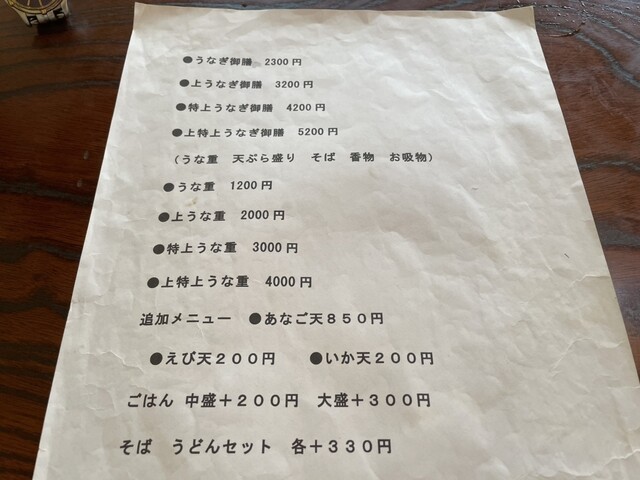 ●うなぎ御膳 2300円
●上うなぎ御膳 3200円
●特上うなぎ御膳 4200円
●上特上うなぎ御膳 5200円
(うな重 天ぷら盛り そば 香物 お吸物)
●うな重 1200円
●上うな重 2000円
●特上うな重 3000円
●上特上うな重 4000円
追加メニュー ●あなご天850円
●えび天200円 ●いか天200円
ごはん 中盛+200円 大盛+300円
そば うどんセット 各+330円